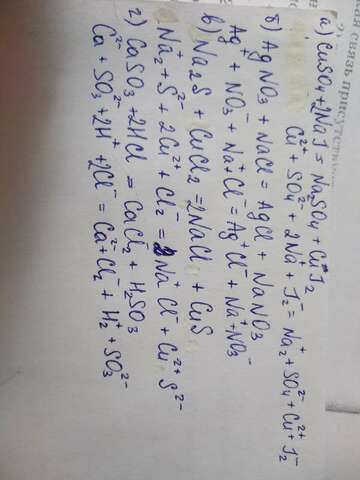 а) CuSO4 + 2NaJ = Na2SO4 + CuJ2
Cu²⁺ + SO4²⁻ + 2Na⁺ + J2⁻ = Na2⁺ + SO4²⁻ + Cu²⁺ + J2⁻
б) AgNO3 + NaCl = AgCl + NaNO3
Ag⁺ + NO3⁻ + Na⁺ + Cl⁻ = Ag⁺Cl⁻ + Na⁺NO3⁻
в) Na2S + CuCl2 = 2NaCl + CuS
Na2⁺ + S²⁻ + 2Cu²⁺ + Cl2⁻ = 2Na⁺Cl⁻ + Cu²⁺S²⁻
г) CaSO3 + 2HCl = CaCl2 + H2SO3
Ca²⁻ + SO3²⁻ + 2H⁺ + 2Cl⁻ = Ca²⁻ + Cl2⁻ + H2⁺ + SO3²⁻